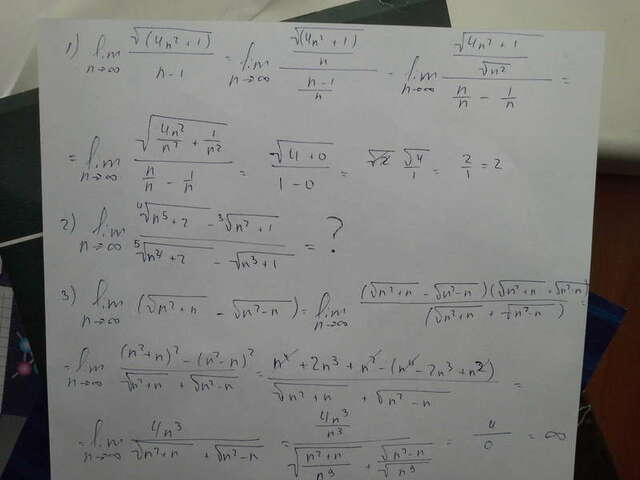 1) lim n→∞ √(4n²+1) / (n-1) = lim n→∞ (√(4n²+1) / n) / ((n-1) / n) = lim n→∞ (√(4n²+1) / √n²) / (n/n - 1/n) =
= lim n→∞ √(4n²/n² + 1/n²) / (n/n - 1/n) = √(4+0) / (1-0) = √4 / 1 = 2/1 = 2
2) lim n→∞ (⁴√(n⁵+2) - ³√(n²+1)) / (⁵√(n⁴+2) - √(n³+1)) = ?
3) lim n→∞ (√(n²+n) - √(n²-n)) = lim n→∞ (√(n²+n) - √(n²-n)) (√(n²+n) + √(n²-n)) / (√(n²+n) + √(n²-n)) =
= lim n→∞ ((n²+n)² - (n²-n)²) / (√(n²+n) + √(n²-n)) = (n⁴+2n³+n² - (n⁴-2n³+n²)) / (√(n²+n) + √(n²-n)) =
= lim n→∞ 4n³ / (√(n²+n) + √(n²-n)) = (4n³/n³) / (√((n²+n)/n⁹) + √(n²-n)/√n⁹) = 4/0 = ∞